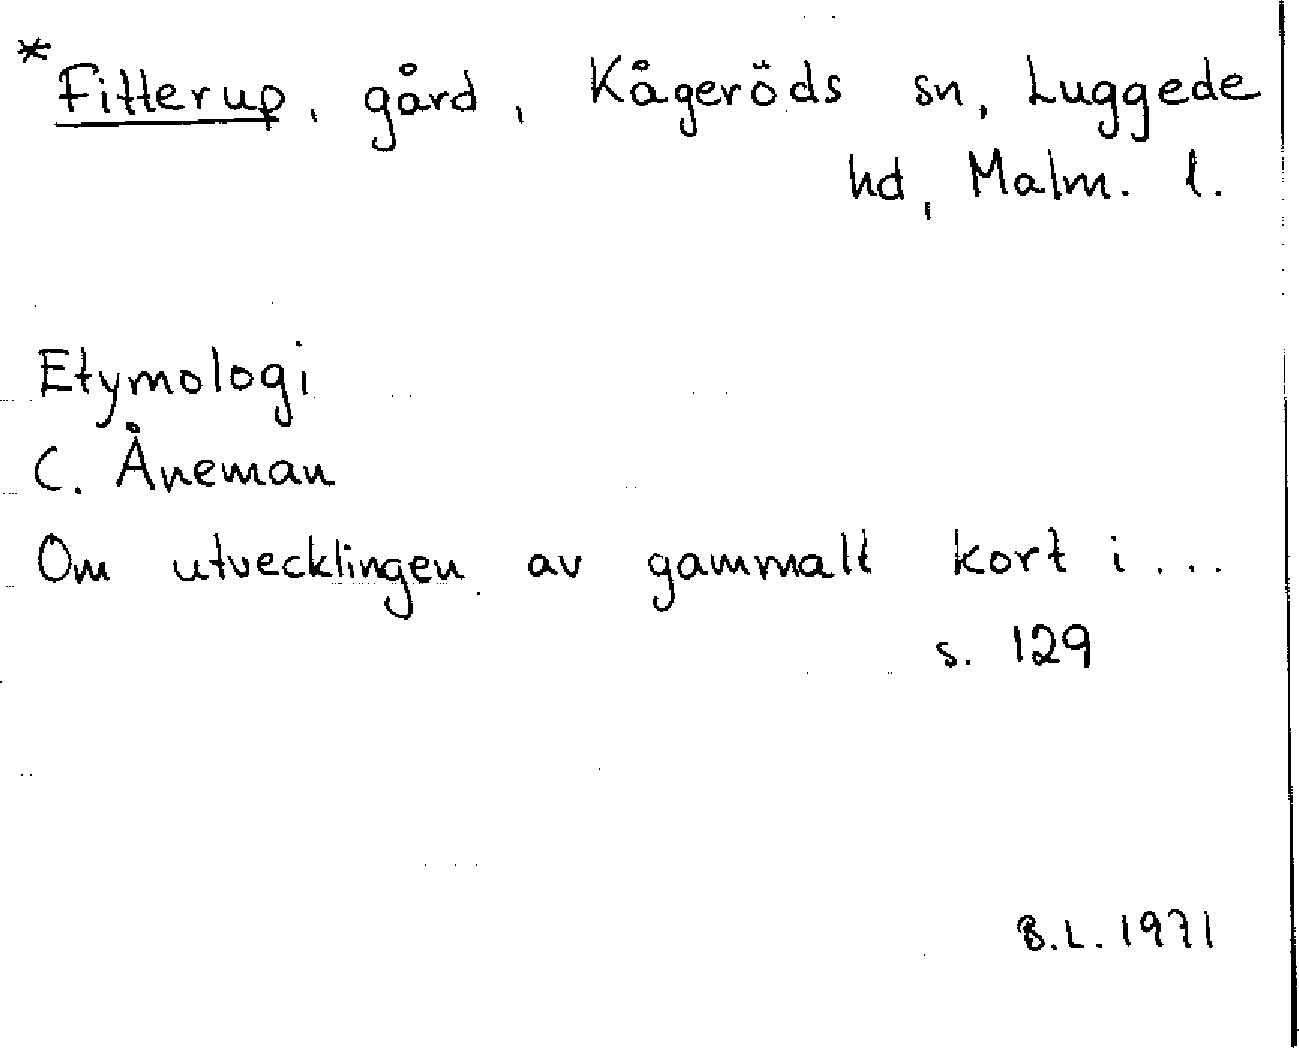 *Fitterup, gård, Kågeröds sn, Luggede
hd, Malm. l.
Etymologi
C. Åneman
Om utvecklingen av gammalt kort i...
s. 129
B.L. 1971